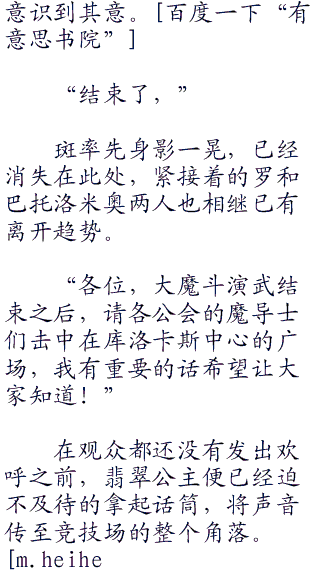 意识到其意。[百度一下“有
意思书院”]
“结束了，”
斑率先身影一晃，已经
消失在此处，紧接着的罗和
巴托洛米奥两人也相继已有
离开趋势。
“各位，大魔斗演武结
束之后，请各公会的魔导士
们击中在库洛卡斯中心的广
场，我有重要的话希望让大
家知道！”
在观众都还没有发出欢
呼之前，翡翠公主便已经迫
不及待的拿起话筒，将声音
传至竞技场的整个角落。
[m.heihe